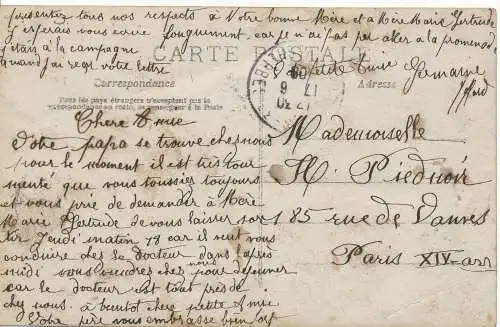 présentez tous nos respects à Votre bonne Mère et à Mère Marie Gertrude
j'espérais vous écrire longuement car je n'ai pas pu aller à la promenade
j'étais à la campagne
quand j'ai reçu votre lettre
CARTE POSTALE
petite amie
Correspondance
Adresse
Tous les pays étrangers n'acceptent pas la
correspondance au recto, se renseigner à la Poste
17 6
Chère Amie
Votre papa se trouve chez nous
pour le moment il est très tour
menté que vous toussiez toujours
et vous prie de demander à Mère
Marie Gertrude de vous laisser sor
tir Jeudi matin 18 car il veut vous
conduire chez le docteur dans l'après
midi vous viendrez chez nous pour déjeuner
car le docteur est tout près de
chez nous. à bientôt chère petite Amie
Votre père vous embrasse bien fort
Mademoiselle
H. Piednoir
85 rue de Vanves
Paris XIV-arr